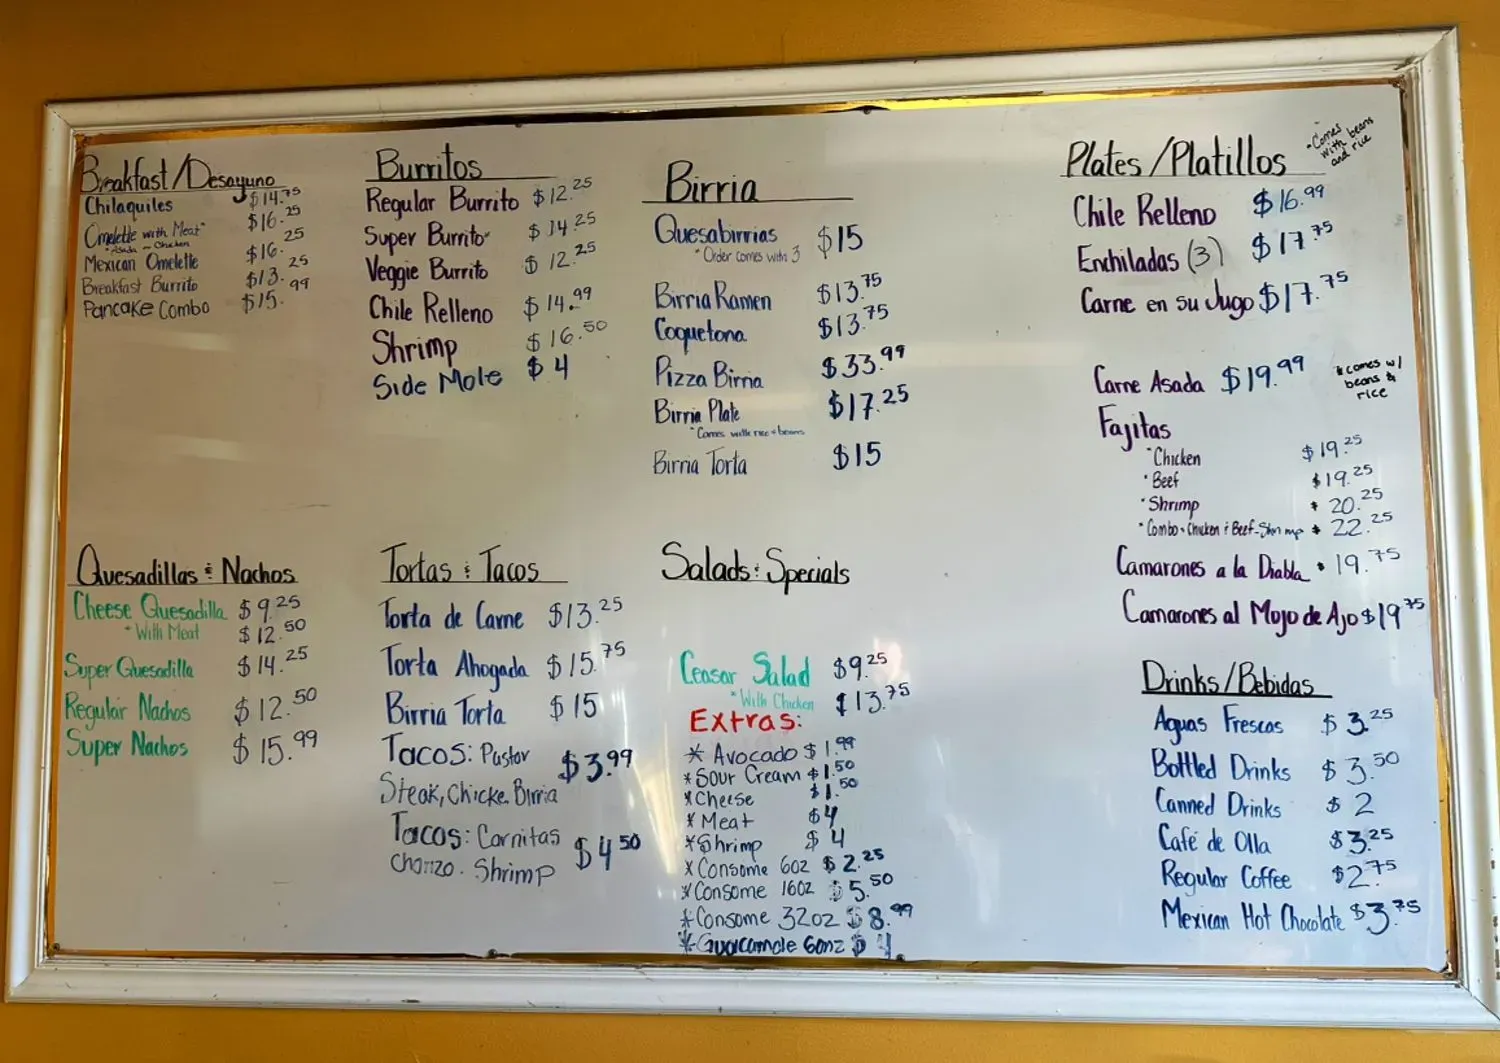 Breakfast/Desayuno
Chilaquiles $14.75
Omelette with Meat $16.25
*Asada - Chicken
Mexican Omelette $16.25
Breakfast Burrito $13.25
Pancake Combo $15.99
Burritos
Regular Burrito $12.25
Super Burrito $14.25
Veggie Burrito $12.25
Chile Relleno $14.99
Shrimp $16.50
Side Mole $4
Birria
Quesabirrias $15
*Order comes with 3
Birria Ramen $13.75
Coquetona $13.75
Pizza Birria $33.99
Birria Plate $17.25
*Comes with rice + beans
Birria Torta $15
Plates/Platillos
*Comes
with beans
and rice
Chile Relleno $16.99
Enchiladas (3) $17.75
Carne en su Jugo $17.75
Carne Asada $19.99
*comes w/
beans &
rice
Fajitas
*Chicken $19.25
*Beef $19.25
*Shrimp $20.25
*Combo - Chicken & Beef - Shrimp $22.25
Camarones a la Diabla $19.75
Camarones al Mojo de Ajo $19.75
Quesadillas & Nachos
Cheese Quesadilla $9.25
*With Meat $12.50
Super Quesadilla $14.25
Regular Nachos $12.50
Super Nachos $15.99
Tortas & Tacos
Torta de Carne $13.25
Torta Ahogada $15.75
Birria Torta $15
Tacos: Pastor $3.99
Steak, Chicke. Birria
Tacos: Carnitas $4.50
Chorizo. Shrimp
Salads & Specials
Ceasar Salad $9.25
*With Chicken $13.75
Extras:
*Avocado $1.99
*Sour Cream $1.50
*Cheese $1.50
*Meat $4
*Shrimp $4
*Consome 6oz $2.25
*Consome 16oz $5.50
*Consome 32oz $8.99
*Guacamole 6onz $4
Drinks/Bebidas
Aguas Frescas $3.25
Bottled Drinks $3.50
Canned Drinks $2
Café de Olla $3.25
Regular Coffee $2.75
Mexican Hot Chocolate $3.75